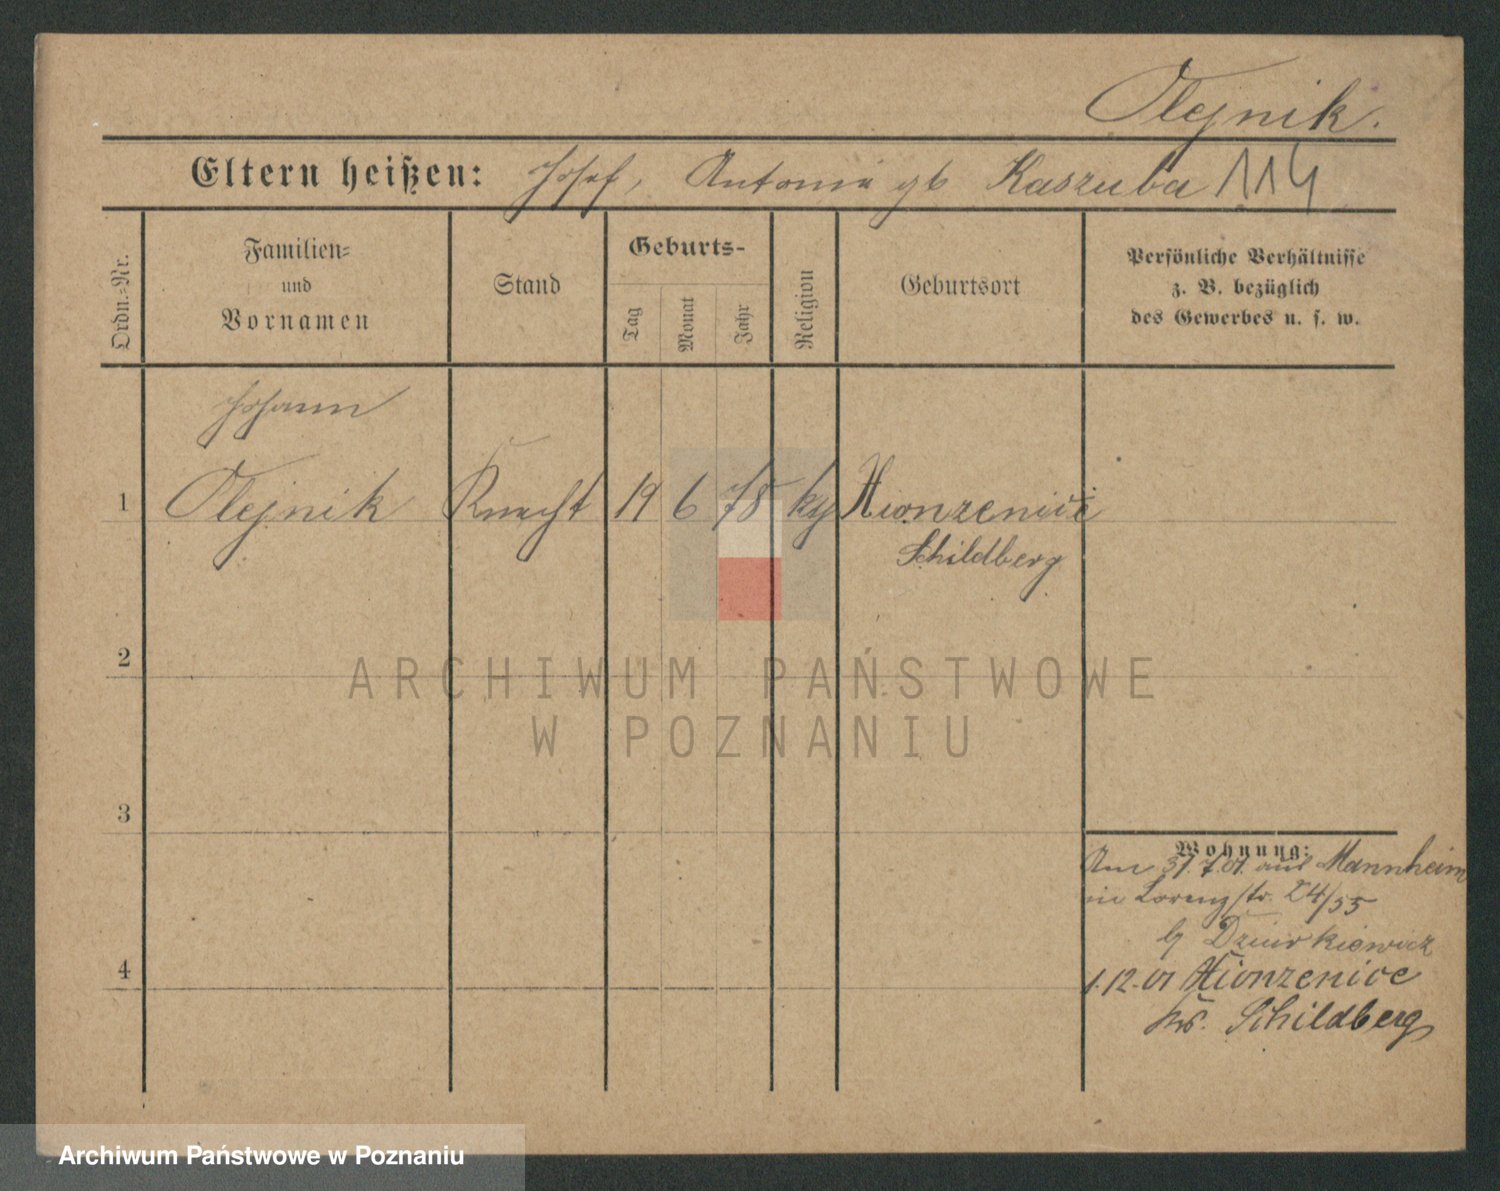 Olejnik.
Eltern heißen: Josef, Antonie gb Kaszuba 114
Ordn.-Nr.
Familien-
und
Vornamen
Stand
Geburts-
Tag
Monat
Jahr
Religion
Geburtsort
Persönliche Verhältnisse
z. B. bezüglich
des Gewerbes u. s. w.
Johann
1 Olejnik Knecht 19 6 78 kg
Schildberg
2
ARCHIWUM PAŃSTWOWE
W POZNANIU
3
Wohnung:
Am 31.7.01. aus Mannheim
in Lorenzstr. 24/55
4
1.12.01
Krs. Schildberg
Archiwum Państwowe w Poznaniu